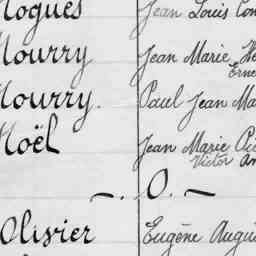 Nogues Jean Louis
Mourry Jean Marie
Mourry. Paul Jean
Noël Jean Marie
Victor
O.
Olivier Eugène